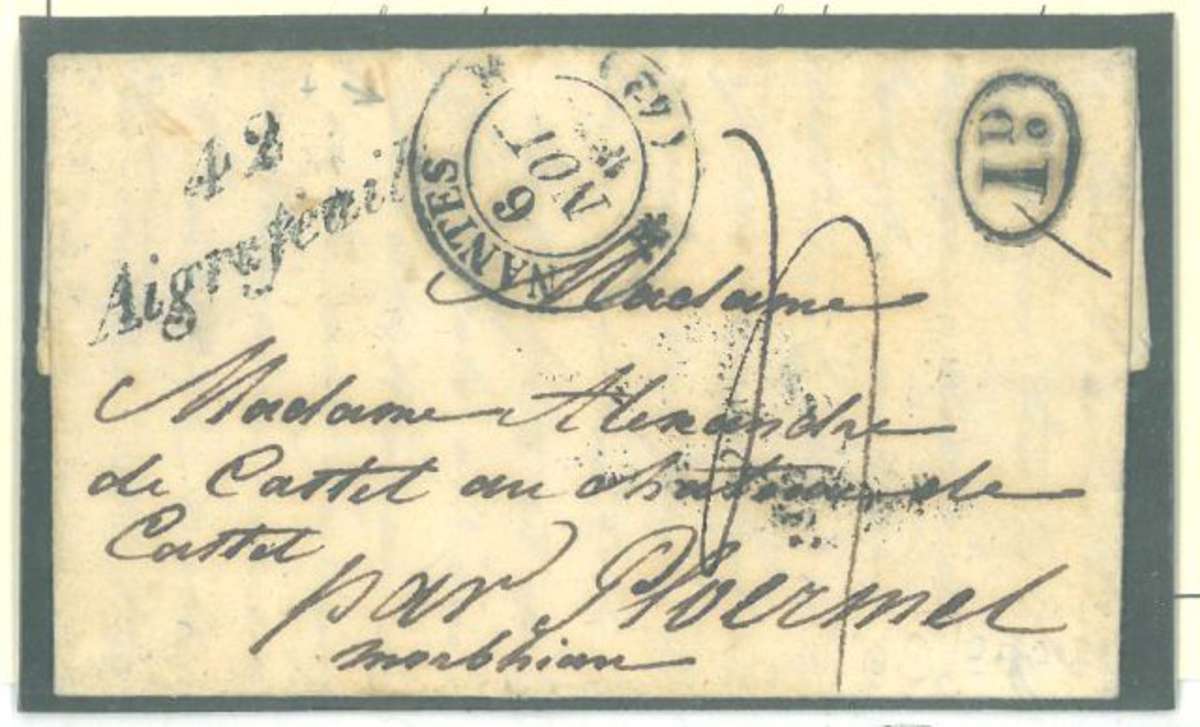 42
Aigrefeuille
NANTES
6
NOV
(42)
1D
Madame
Madame Alexandre
de Castel au chateau de
Castel
par Ploermel
morbhian